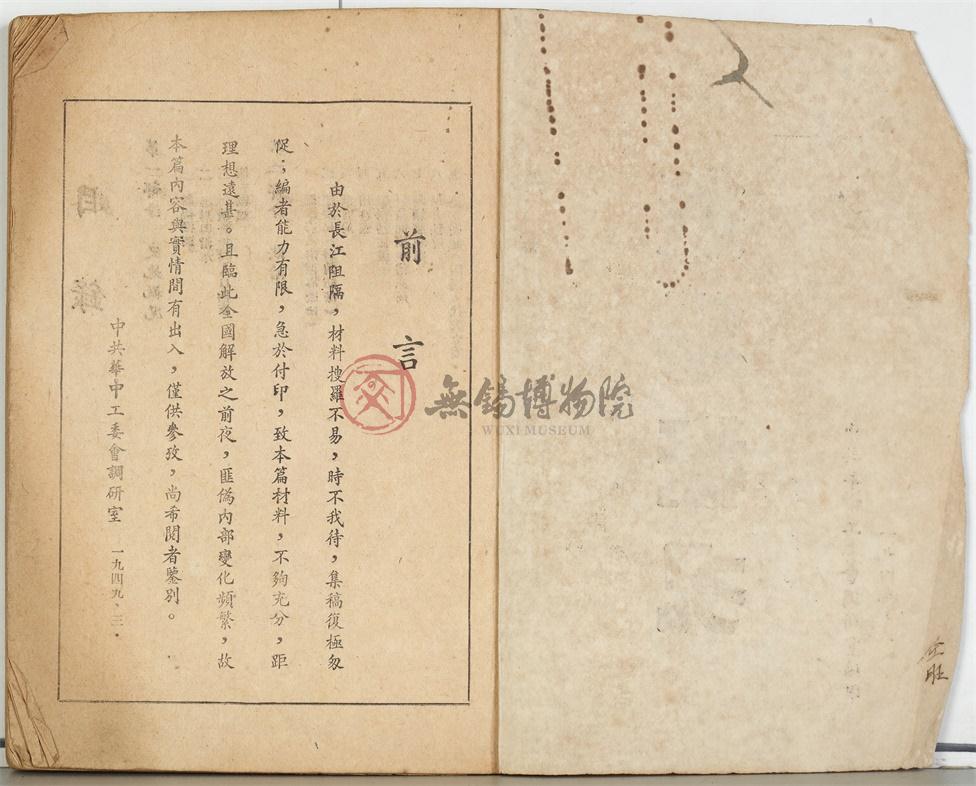 前言
由於長江阻隔，材料搜羅不易，時不我待，集稿復極匆
促；編者能力有限，急於付印，致本篇材料，不夠充分，距
理想遠甚。且臨此全國解放之前夜，匪偽內部變化頻繁，故
本篇內容與實情間有出入，僅供參攷，尚希閱者鑒別。
中共華中工委會調研室 一九四九、三．
目錄
無錫博物院
WUXI MUSEUM